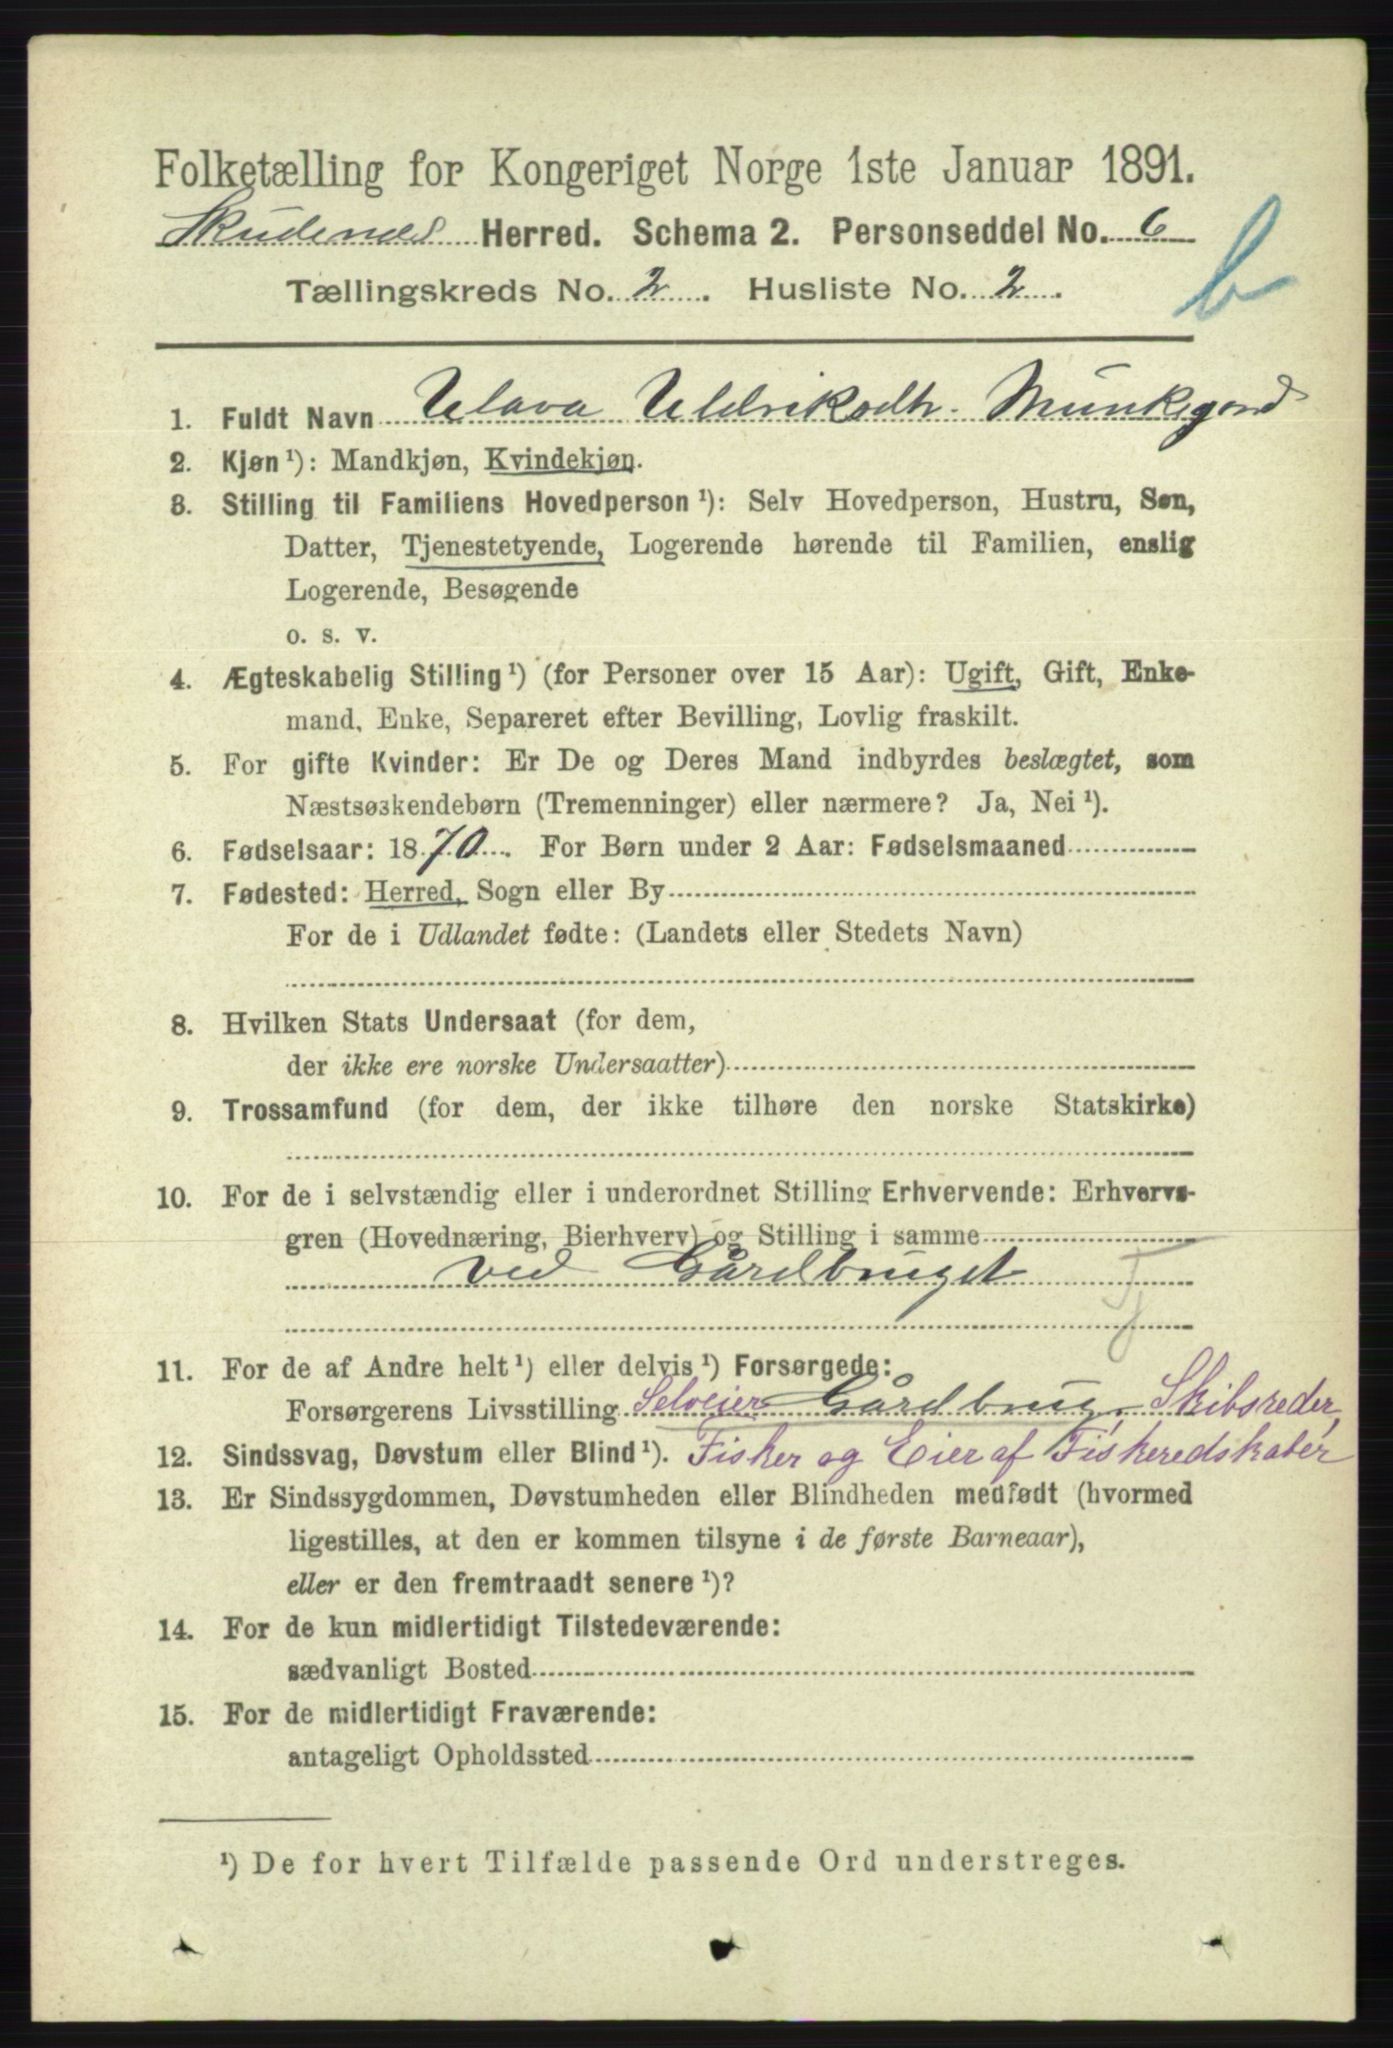 Folketælling for Kongeriget Norge 1ste Januar 1891.
Skudenes Herred. Schema 2. Personseddel No. 6
b
Tællingskreds No. 2. Husliste No. 2.
1. Fuldt Navn Udrikadtr. Munkegard
2. Kjøn ¹): Mandkjøn, Kvindekjøn.
3. Stilling til Familiens Hovedperson ¹): Selv Hovedperson, Hustru, Søn,
Datter, Tjenestetyende, Logerende hørende til Familien, enslig
Logerende, Besøgende
o. s. v.
4. Ægteskabelig Stilling ¹) (for Personer over 15 Aar): Ugift, Gift, Enke-
mand, Enke, Separeret efter Bevilling, Lovlig fraskilt.
5. For gifte Kvinder: Er De og Deres Mand indbyrdes beslægtet, som
Næstsøskendebørn (Tremenninger) eller nærmere? Ja, Nei ¹).
6. Fødselsaar: 1870. For Børn under 2 Aar: Fødselsmaaned
7. Fødested: Herred, Sogn eller By
For de i Udlandet fødte: (Landets eller Stedets Navn)
8. Hvilken Stats Undersaat (for dem,
der ikke ere norske Undersaatter)
9. Trossamfund (for dem, der ikke tilhøre den norske Statskirke)
10. For de i selvstændig eller i underordnet Stilling Erhvervende: Erhvervs-
gren (Hovednæring, Bierhverv) og Stilling i samme
ved Gårdbruget
Tj
11. For de af Andre helt ¹) eller delvis ¹) Forsørgede:
Forsørgerens Livsstilling Selveier Gårdbrug, Skibsreder,
12. Sindssvag, Døvstum eller Blind ¹). Fisker og Eier af Fiskeredskaber
13. Er Sindssygdommen, Døvstumheden eller Blindheden medfødt (hvormed
ligestilles, at den er kommen tilsyne i de første Barneaar),
eller er den fremtraadt senere ¹)?
14. For de kun midlertidigt Tilstedeværende:
sædvanligt Bosted
15. For de midlertidigt Fraværende:
antageligt Opholdssted
¹) De for hvert Tilfælde passende Ord understreges.